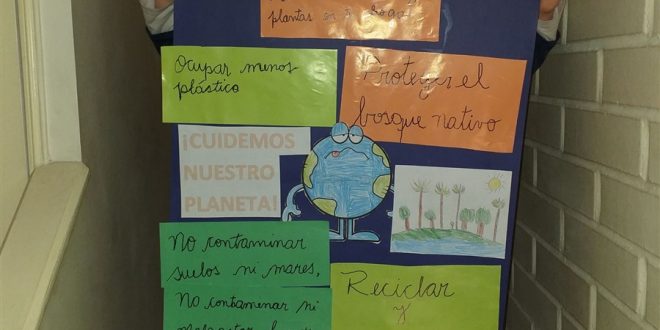 plantas en tu hogar
Ocupar menos
plástico
Proteger el
bosque nativo
¡CUIDEMOS
NUESTRO
PLANETA!
No contaminar
suelos ni mares,
No contamenar ni
Reciclar
y